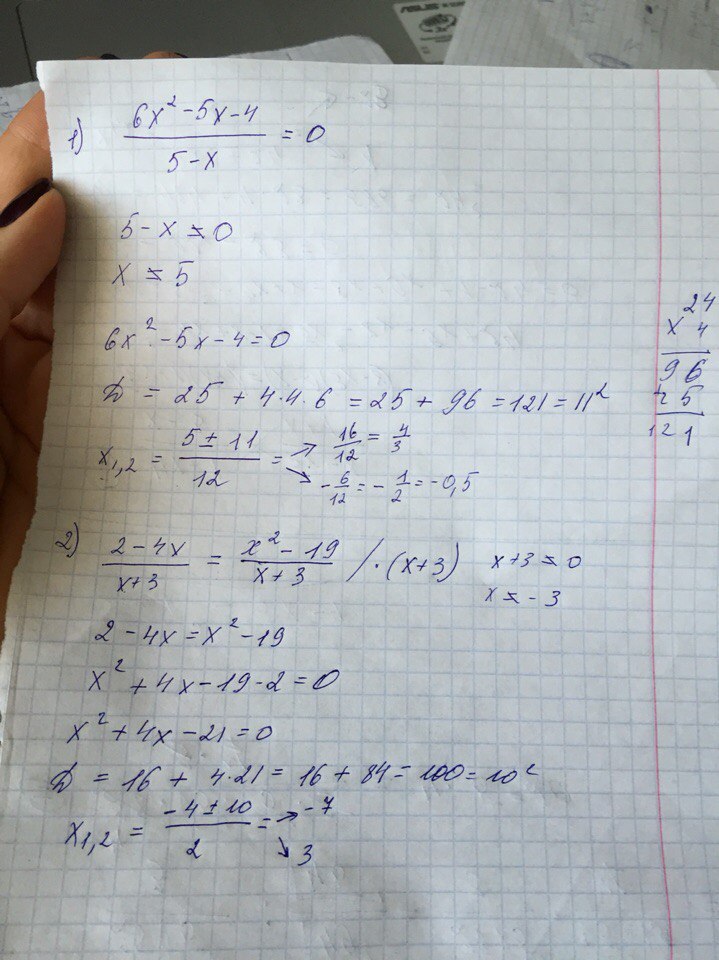 1) (6x² - 5x - 4)/(5 - x) = 0
5 - x ≠ 0
x ≠ 5
6x² - 5x - 4 = 0
D = 25 + 4·4·6 = 25 + 96 = 121 = 11²
x₁,₂ = (5 ± 11)/12 = → 16/12 = 4/3
↘ -6/12 = -1/2 = -0,5
24
x 4
96
+25
121
2) (2 - 4x)/(x+3) = (x² - 19)/(x+3) / ·(x+3) x+3 ≠ 0
x ≠ -3
2 - 4x = x² - 19
x² + 4x - 19 - 2 = 0
x² + 4x - 21 = 0
D = 16 + 4·21 = 16 + 84 = 100 = 10²
x₁,₂ = (-4 ± 10)/2 = → -7
↘ 3
ASUS